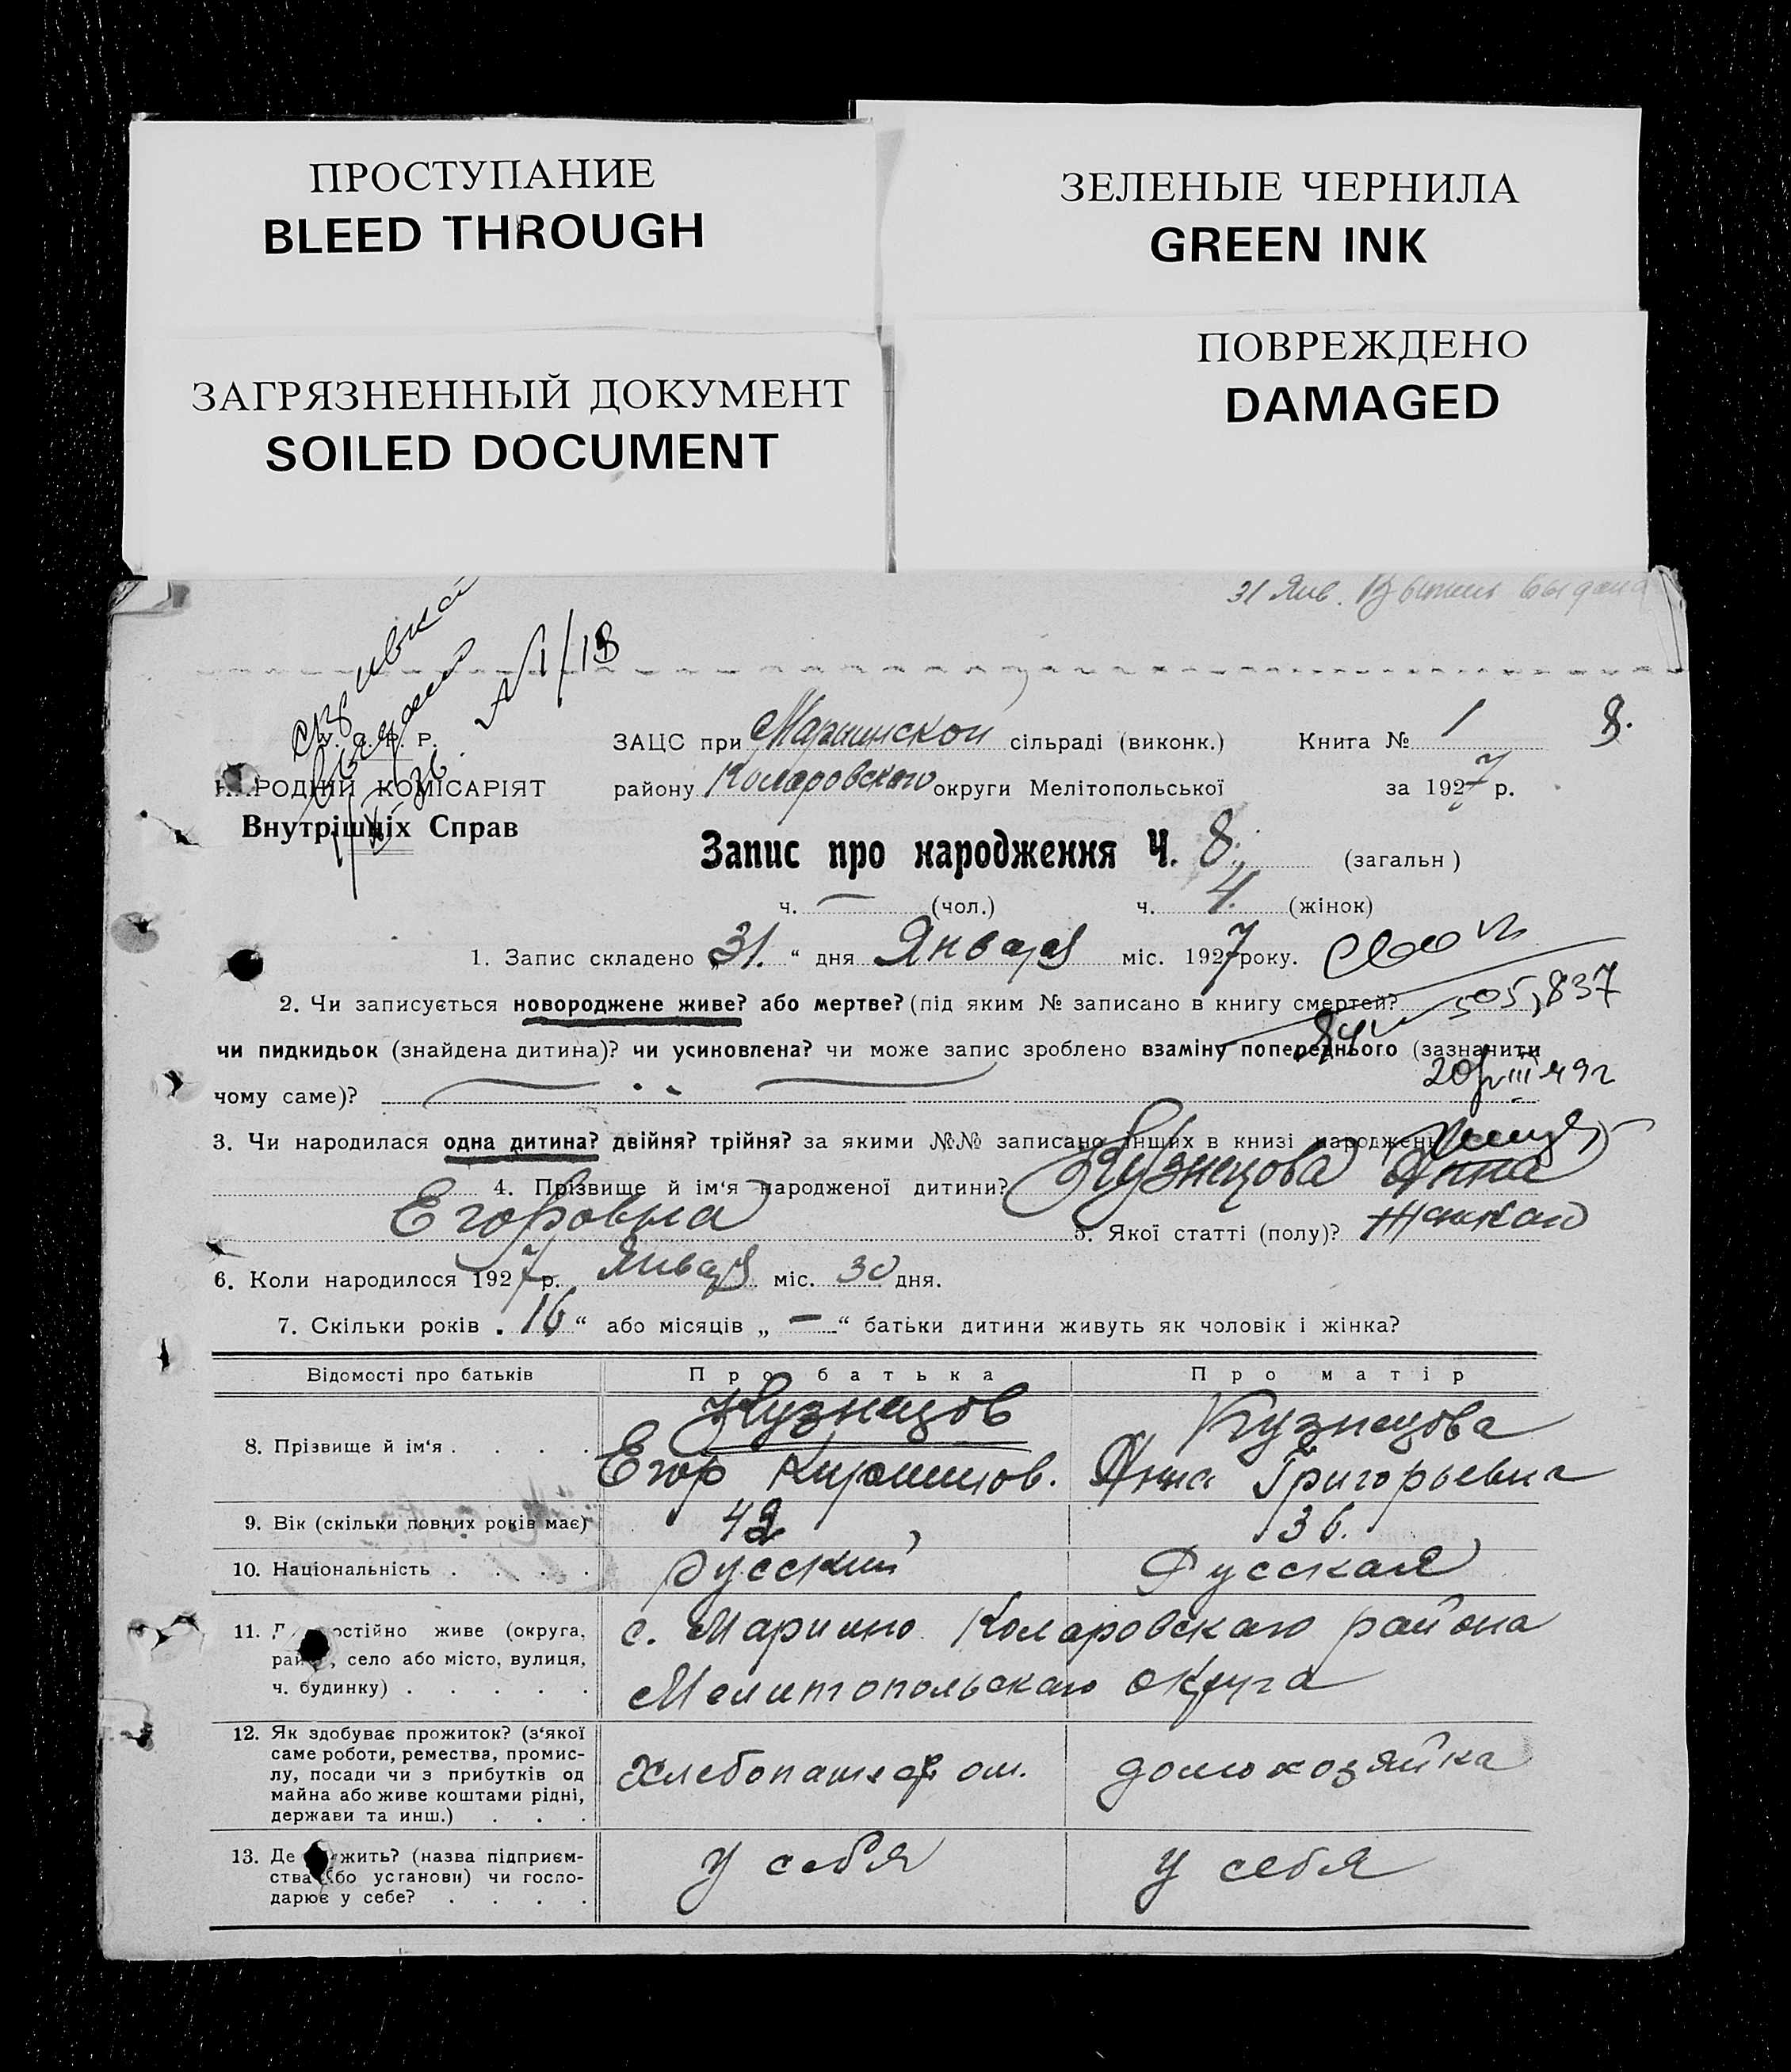 ПРОСТУПАНИЕ
BLEED THROUGH
ЗЕЛЕНЫЕ ЧЕРНИЛА
GREEN INK
ЗАГРЯЗНЕННЫЙ ДОКУМЕНТ
SOILED DOCUMENT
ПОВРЕЖДЕНО
DAMAGED
31 Янв. выдана
№ 1/18
Р.
НАРОДНІЙ КОМІСАРІЯТ
Внутрішніх Справ
ЗАЦС при Мариинской сільраді (виконк.) Книга № 1 8.
району Коларовскаго округи Мелітопольської за 1927 р.
Запис про народження Ч. 8. (загальн)
ч. — (чол.) ч. 4. (жінок)
1. Запис складено „31.“ дня Января міс. 1927 року.
2. Чи записується новороджене живе? або мертве? (під яким № записано в книгу смертей? 505,837
чи пидкидьок (знайдена дитина)? чи усиновлена? чи може запис зроблено взаміну попереднього (зазначити
20/VIII 49г
чому саме)?
3. Чи народилася одна дитина? двійня? трійня? за якими №№ записано інших в книзі народжень
4. Прізвище й ім'я народженої дитини? Кузнецова Анна
Егоровна 5. Якої статті (полу)? Женская
6. Коли народилося 1927 р. Января міс. 30 дня.
7. Скільки років „16“ або місяців „—“ батьки дитини живуть як чоловік і жінка?
Відомості про батьків Про батька Про матір
Кузнецов Кузнецова
8. Прізвище й ім'я . . . . Егор Анна Григорьевна
9. Вік (скільки повних років має) 42 36.
10. Національність . . . . Русский Русская
11. Де постійно живе (округа, с. Мариино Коларовскаго района
район, село або місто, вулиця,
ч. будинку) . . . . . Мелитопольскаго округа
12. Як здобуває прожиток? (з'якої
саме роботи, ремества, промис-
лу, посади чи з прибутків од Хлебопашеством. домохозяйка
майна або живе коштами рідні,
держави та инш.) . . .
13. Де служить? (назва підприєм- у себя у себя
ства або установи) чи госпо-
дарює у себе? . . . .